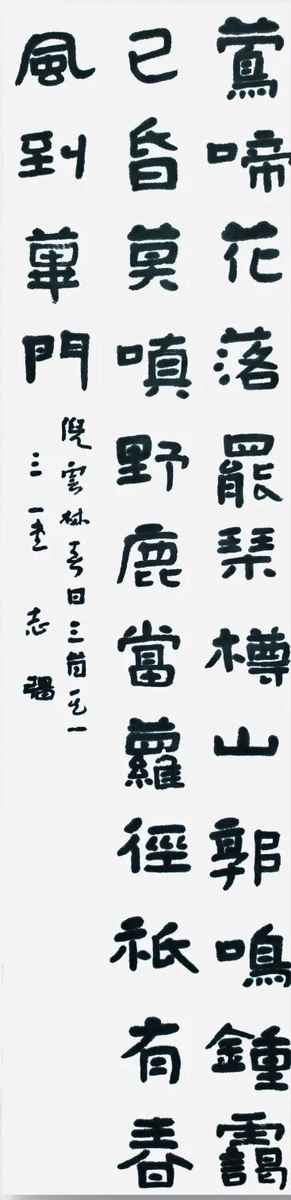 鶯啼花落罷琹樽山郭鳴鍾靄
已昏莫嗔野鹿當蘿徑祇有春
風到蓽門
倪雲林春日三首之一
三一堂志強